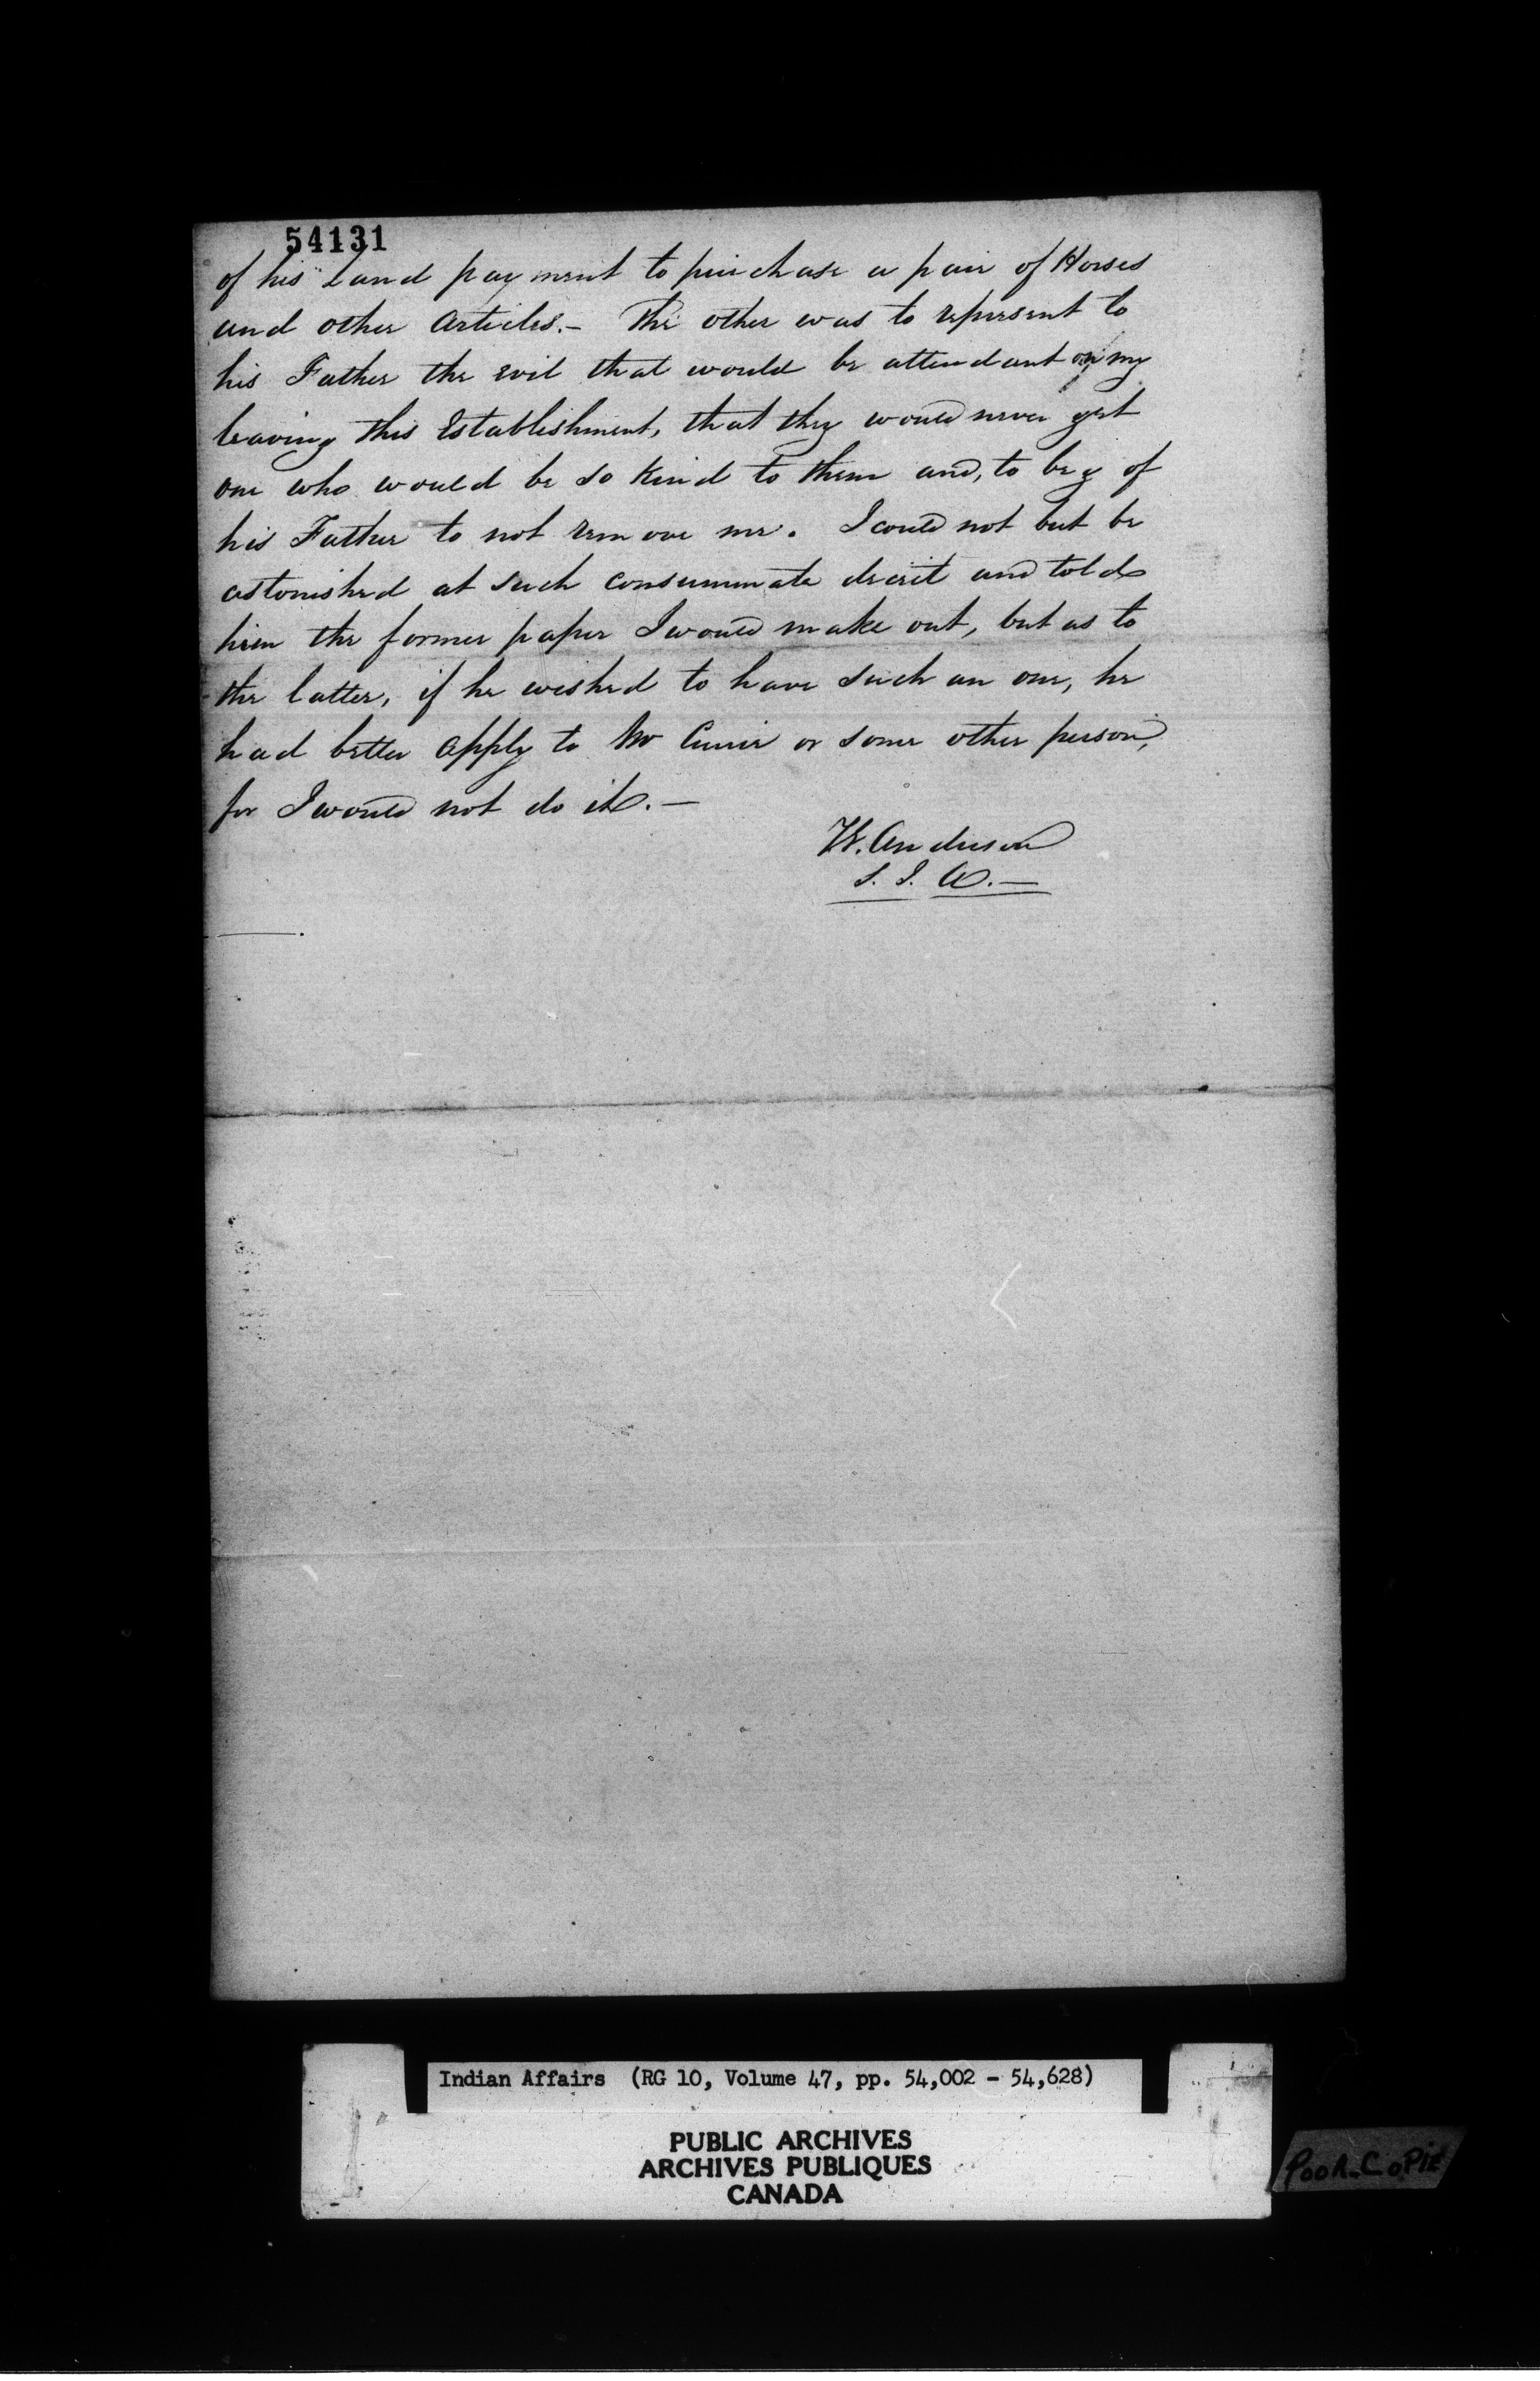 54131
of his Land payment to purchase a pair of Horses
and other Articles.- The other was to represent to
his Father the evil that would be attendant on my
leaving this Establishment, that they would never get
one who would be so kind to them and, to beg of
his Father to not remove me. I could not but be
astonished at such consummate deceit and told
him the former paper I would make out, but as to
the latter, if he wished to have such an one, he
had better apply to Mr Currie or some other person,
for I would not do it.-
W. Anderson
S. I. A.-
Indian Affairs (RG 10, Volume 47, pp. 54,002 - 54,628)
PUBLIC ARCHIVES
ARCHIVES PUBLIQUES
CANADA
POOR COPIE